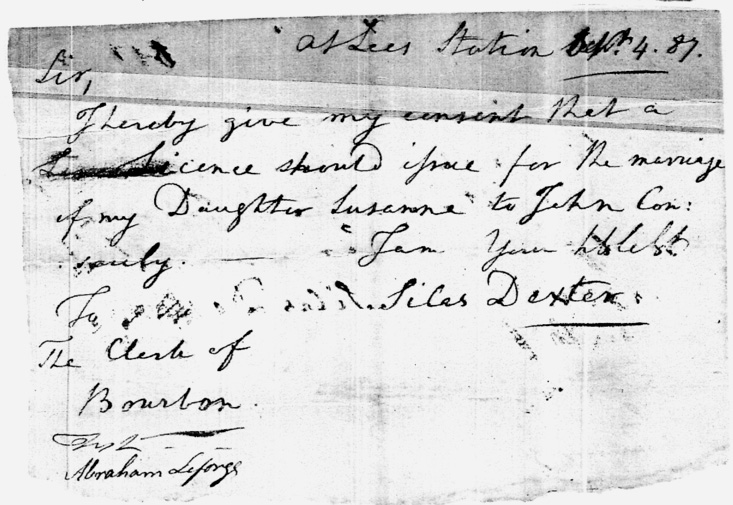 at Lees Station Sept. 4. 87.
Sir,
I hereby give my consent that a
Licence should issue for the marriage
of my Daughter Susanne to John Con:
I am Your
Silas Dexter.
To,
The Clerk of
Bourbon.
Test
Abraham Leforge